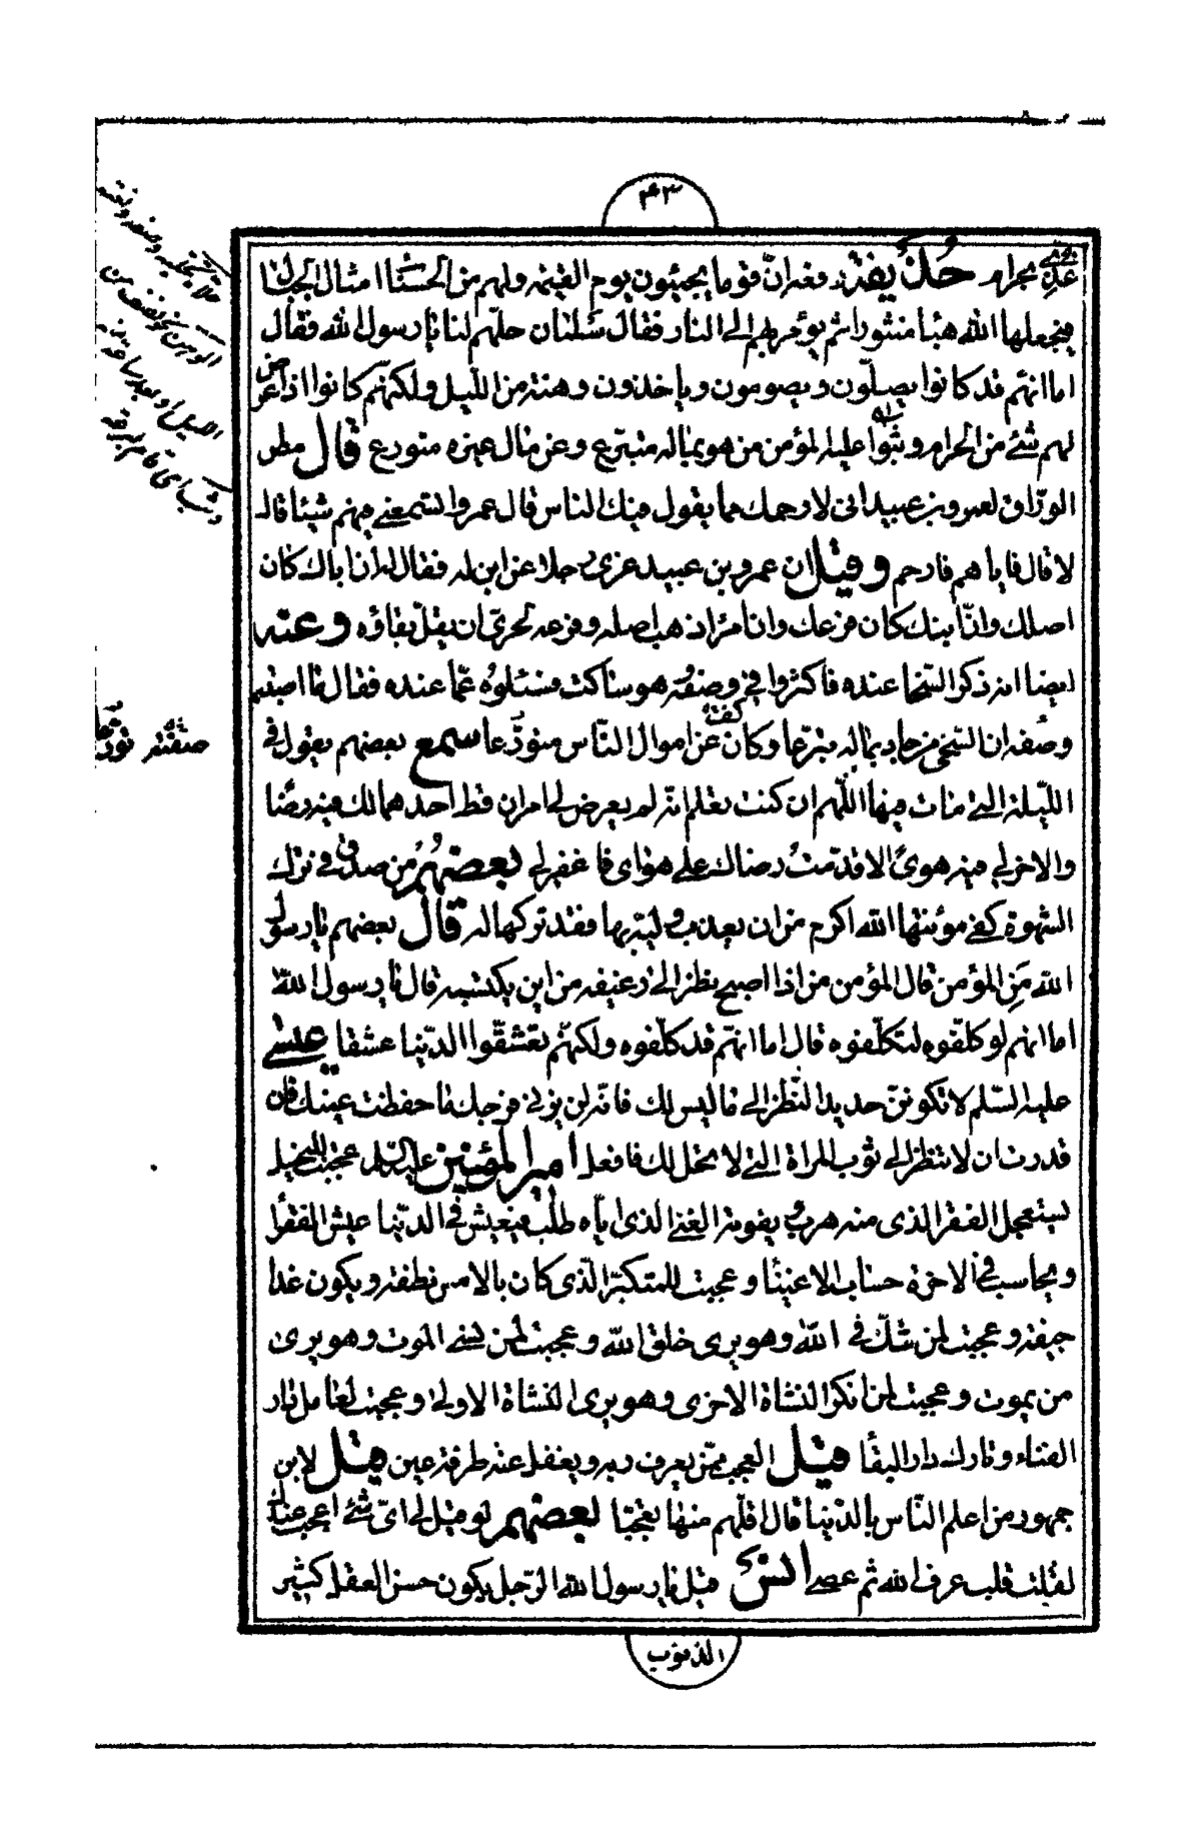 ٤٣
غذي بحرام حذيفة رفعه ان قوما يجيئون يوم القيمة ولهم من الحسنات امثال الجبال
فيجعلها الله هباء منثورا ثم يؤمر بهم الى النار فقال سلمان حلهم لنا يا رسول الله فقال
اما انهم قد كانوا يصلون ويصومون وياخذون وهنة من الليل ولكنهم كانوا اذا عرض
لهم شئ من الحرام وثبوا عليه المؤمن من هو بماله متبرع وعن مال غيره متورع قال مطر
الوراق لعمرو بن عبيد انى لارحمك مما يقول فيك الناس قال عمرو التسمعنى فيهم شيئا قال
لا قال فاياهم فارحم وقيل ان عمرو بن عبيد عزى رجلا عن ابن له فقال له ان اباك كان
اصلك وان ابنك كان فرعك وان امرا ذهب اصله وفرعه لحرى ان يقل بقاؤه وعنه
ايضا انه ذكر السخا عنده فاكثروا فى وصفه وهو ساكت فسئلوه عما عنده فقال ما اصبتم
وصفه ان السخى من جاد بماله متبرعا وكف عن اموال الناس متورعا سمع بعضهم يقول فى
الليلة التى مات فيها اللهم ان كنت تعلم انه لم يعرض لى امران قط احدهما لك فيه رضا
والاخر لى فيه هوى الا قدمت رضاك على هواى فاغفر لى بعضهم من صدق فى ترك
الشهوة كفى مؤنتها الله اكرم من ان يعذب قلبه بها فقد تركها له قال بعضهم يا رسول
الله من المؤمن قال المؤمن من اذا اصبح نظر الى رغيفه من اين يكتسبه قال يا رسول الله
اما انهم لو كلفوه لتكلفوه قال اما انهم قد كلفوه ولكنهم تعشقوا الدنيا عشقا عيسى
عليه السلم لا تكونن حديد النظر الى ما ليس لك فانه لن يزنى فرجك ما حفظت عينك فان
قدرت ان لا تنظر الى ثوب المراة التى لا تحل لك فافعل امير المؤمنين عجبت للبخيل
يستعجل الفقر الذى منه هرب ويفوته الغنى الذى اياه طلب فيعيش فى الدنيا عيش الفقراء
ويحاسب فى الاخرة حساب الاغنيا وعجبت للمتكبر الذى كان بالامس نطفة ويكون غدا
جيفة وعجبت لمن شك فى الله وهو يرى خلق الله وعجبت لمن نسى الموت وهو يرى
من يموت وعجبت لمن انكر النشاة الاخرى وهو يرى النشاة الاولى وعجبت لعامل دار
الفناء وتارك دار البقأ قيل العجب ممن يعرف ربه ويغفل عنه طرفة عين قيل لابن
جمهور من اعلم الناس بالدنيا قال اقلهم منها تعجبا بعضهم لو قيل لى اى شئ اعجب عندك
لقلت قلب عرف الله ثم عصى انس قيل يا رسول الله الرجل يكون حسن العقل كثير
الذنوب